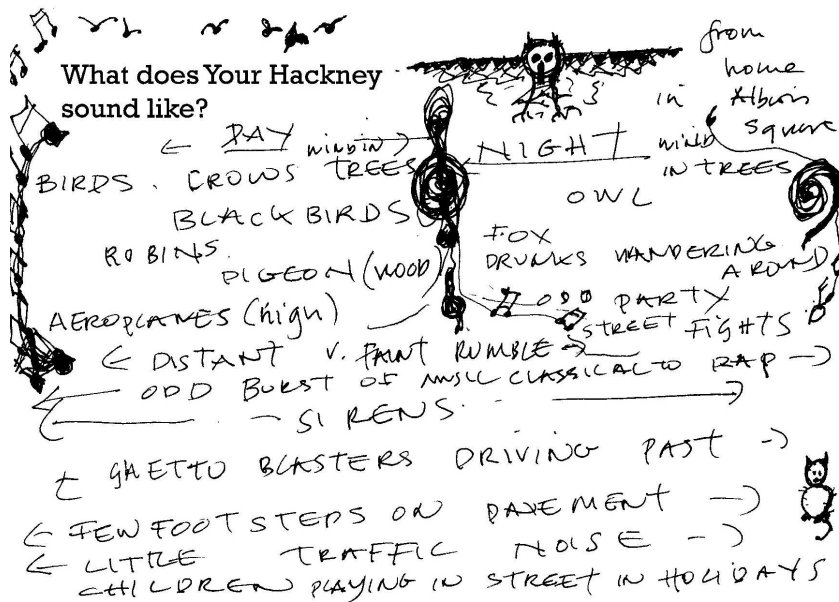 What does Your Hackney
sound like?
from
home
in Albion
Square
← DAY →
WIND IN
TREES
BIRDS. CROWS
BLACKBIRDS
ROBINS.
PIGEON (WOOD)
AEROPLANES (high)
NIGHT
WIND
IN TREES
OWL
FOX
DRUNKS WANDERING
AROUND
ODD PARTY
STREET FIGHTS
← DISTANT V. FAINT RUMBLE →
← ODD BURST OF MUSIC CLASSICAL TO RAP →
← SIRENS. →
← GHETTO BLASTERS DRIVING PAST →
← FEW FOOTSTEPS ON PAVEMENT →
← LITTLE TRAFFIC NOISE →
CHILDREN PLAYING IN STREET IN HOLIDAYS